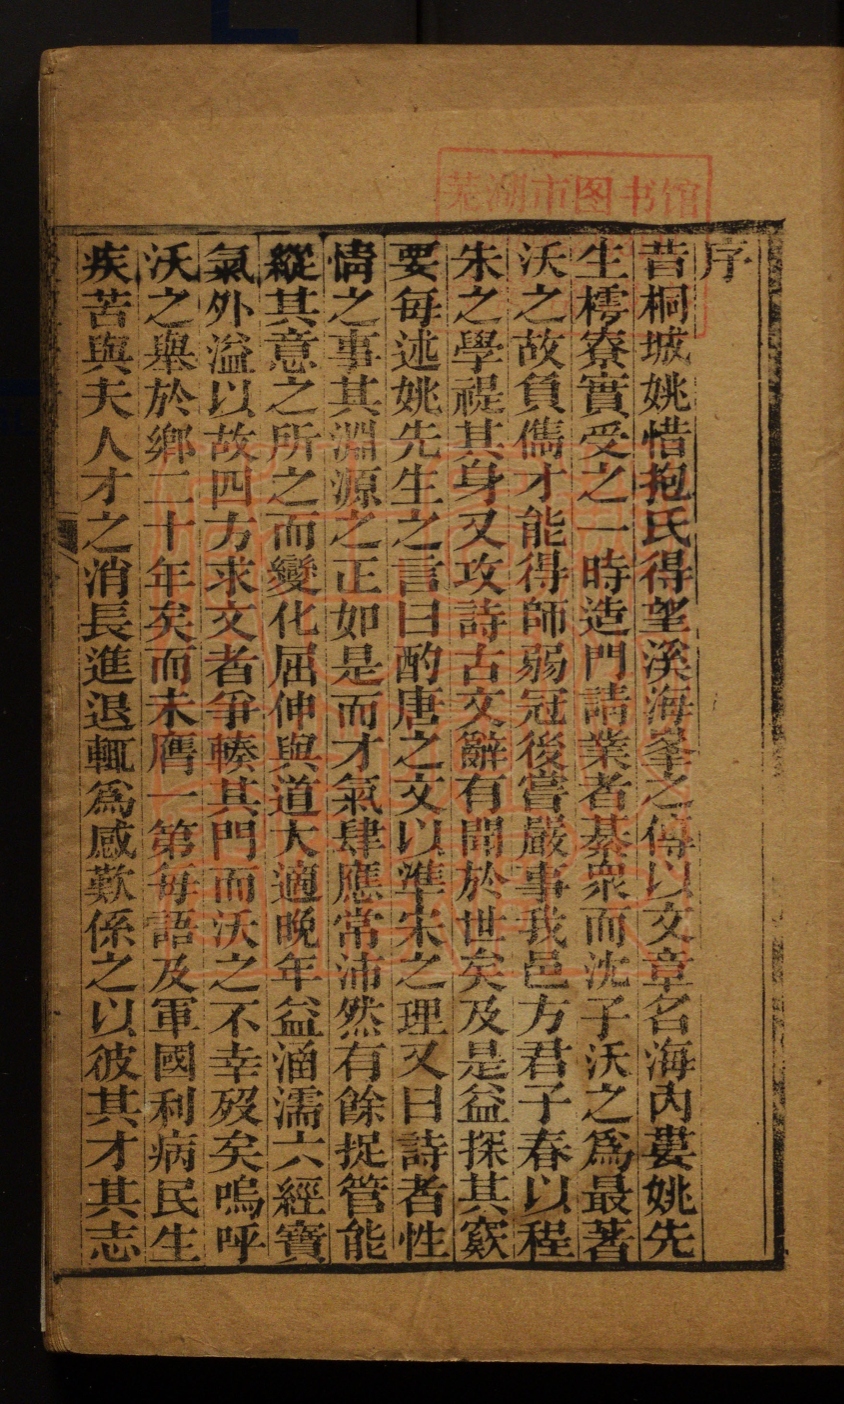 芜湖市图书馆
序
昔桐城姚惜抱氏得望溪海峯之傳以文章名海內婁姚先
生樗寮實受之一時造門請業者綦衆而沈子沃之爲最著
沃之故負儁才能得師弱冠後嘗嚴事我邑方君子春以程
朱之學禔其身又攻詩古文辭有聞於世矣及是益探其窽
要每述姚先生之言曰酌唐之文以準宋之理又曰詩者性
情之事其淵源之正如是而才氣肆應常沛然有餘捉管能
縱其意之所之而變化屈伸與道大適晚年益涵濡六經寶
氣外溢以故四方求文者爭輳其門而沃之不幸歿矣嗚呼
沃之舉於鄉二十年矣而未膺一第每語及軍國利病民生
疾苦與夫人才之消長進退輒爲感歎係之以彼其才其志